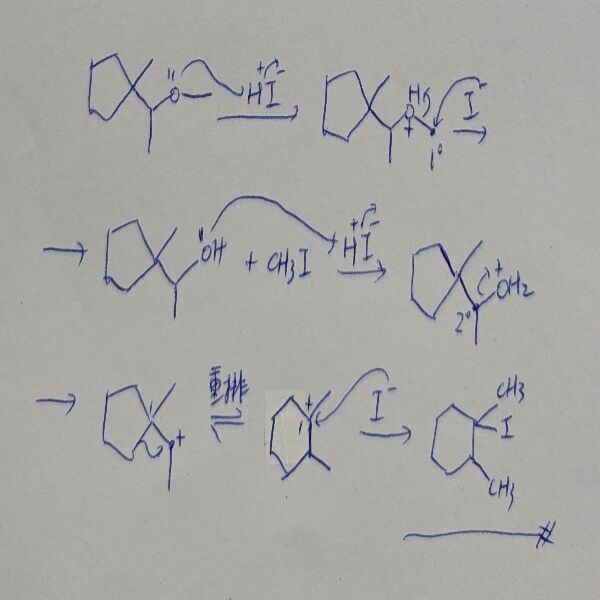 Ö HI + -
HO + 1° I-
ÖH + CH3I HI + - + OH2 2°
+ 重排 + 1 I- CH3 I CH3
#